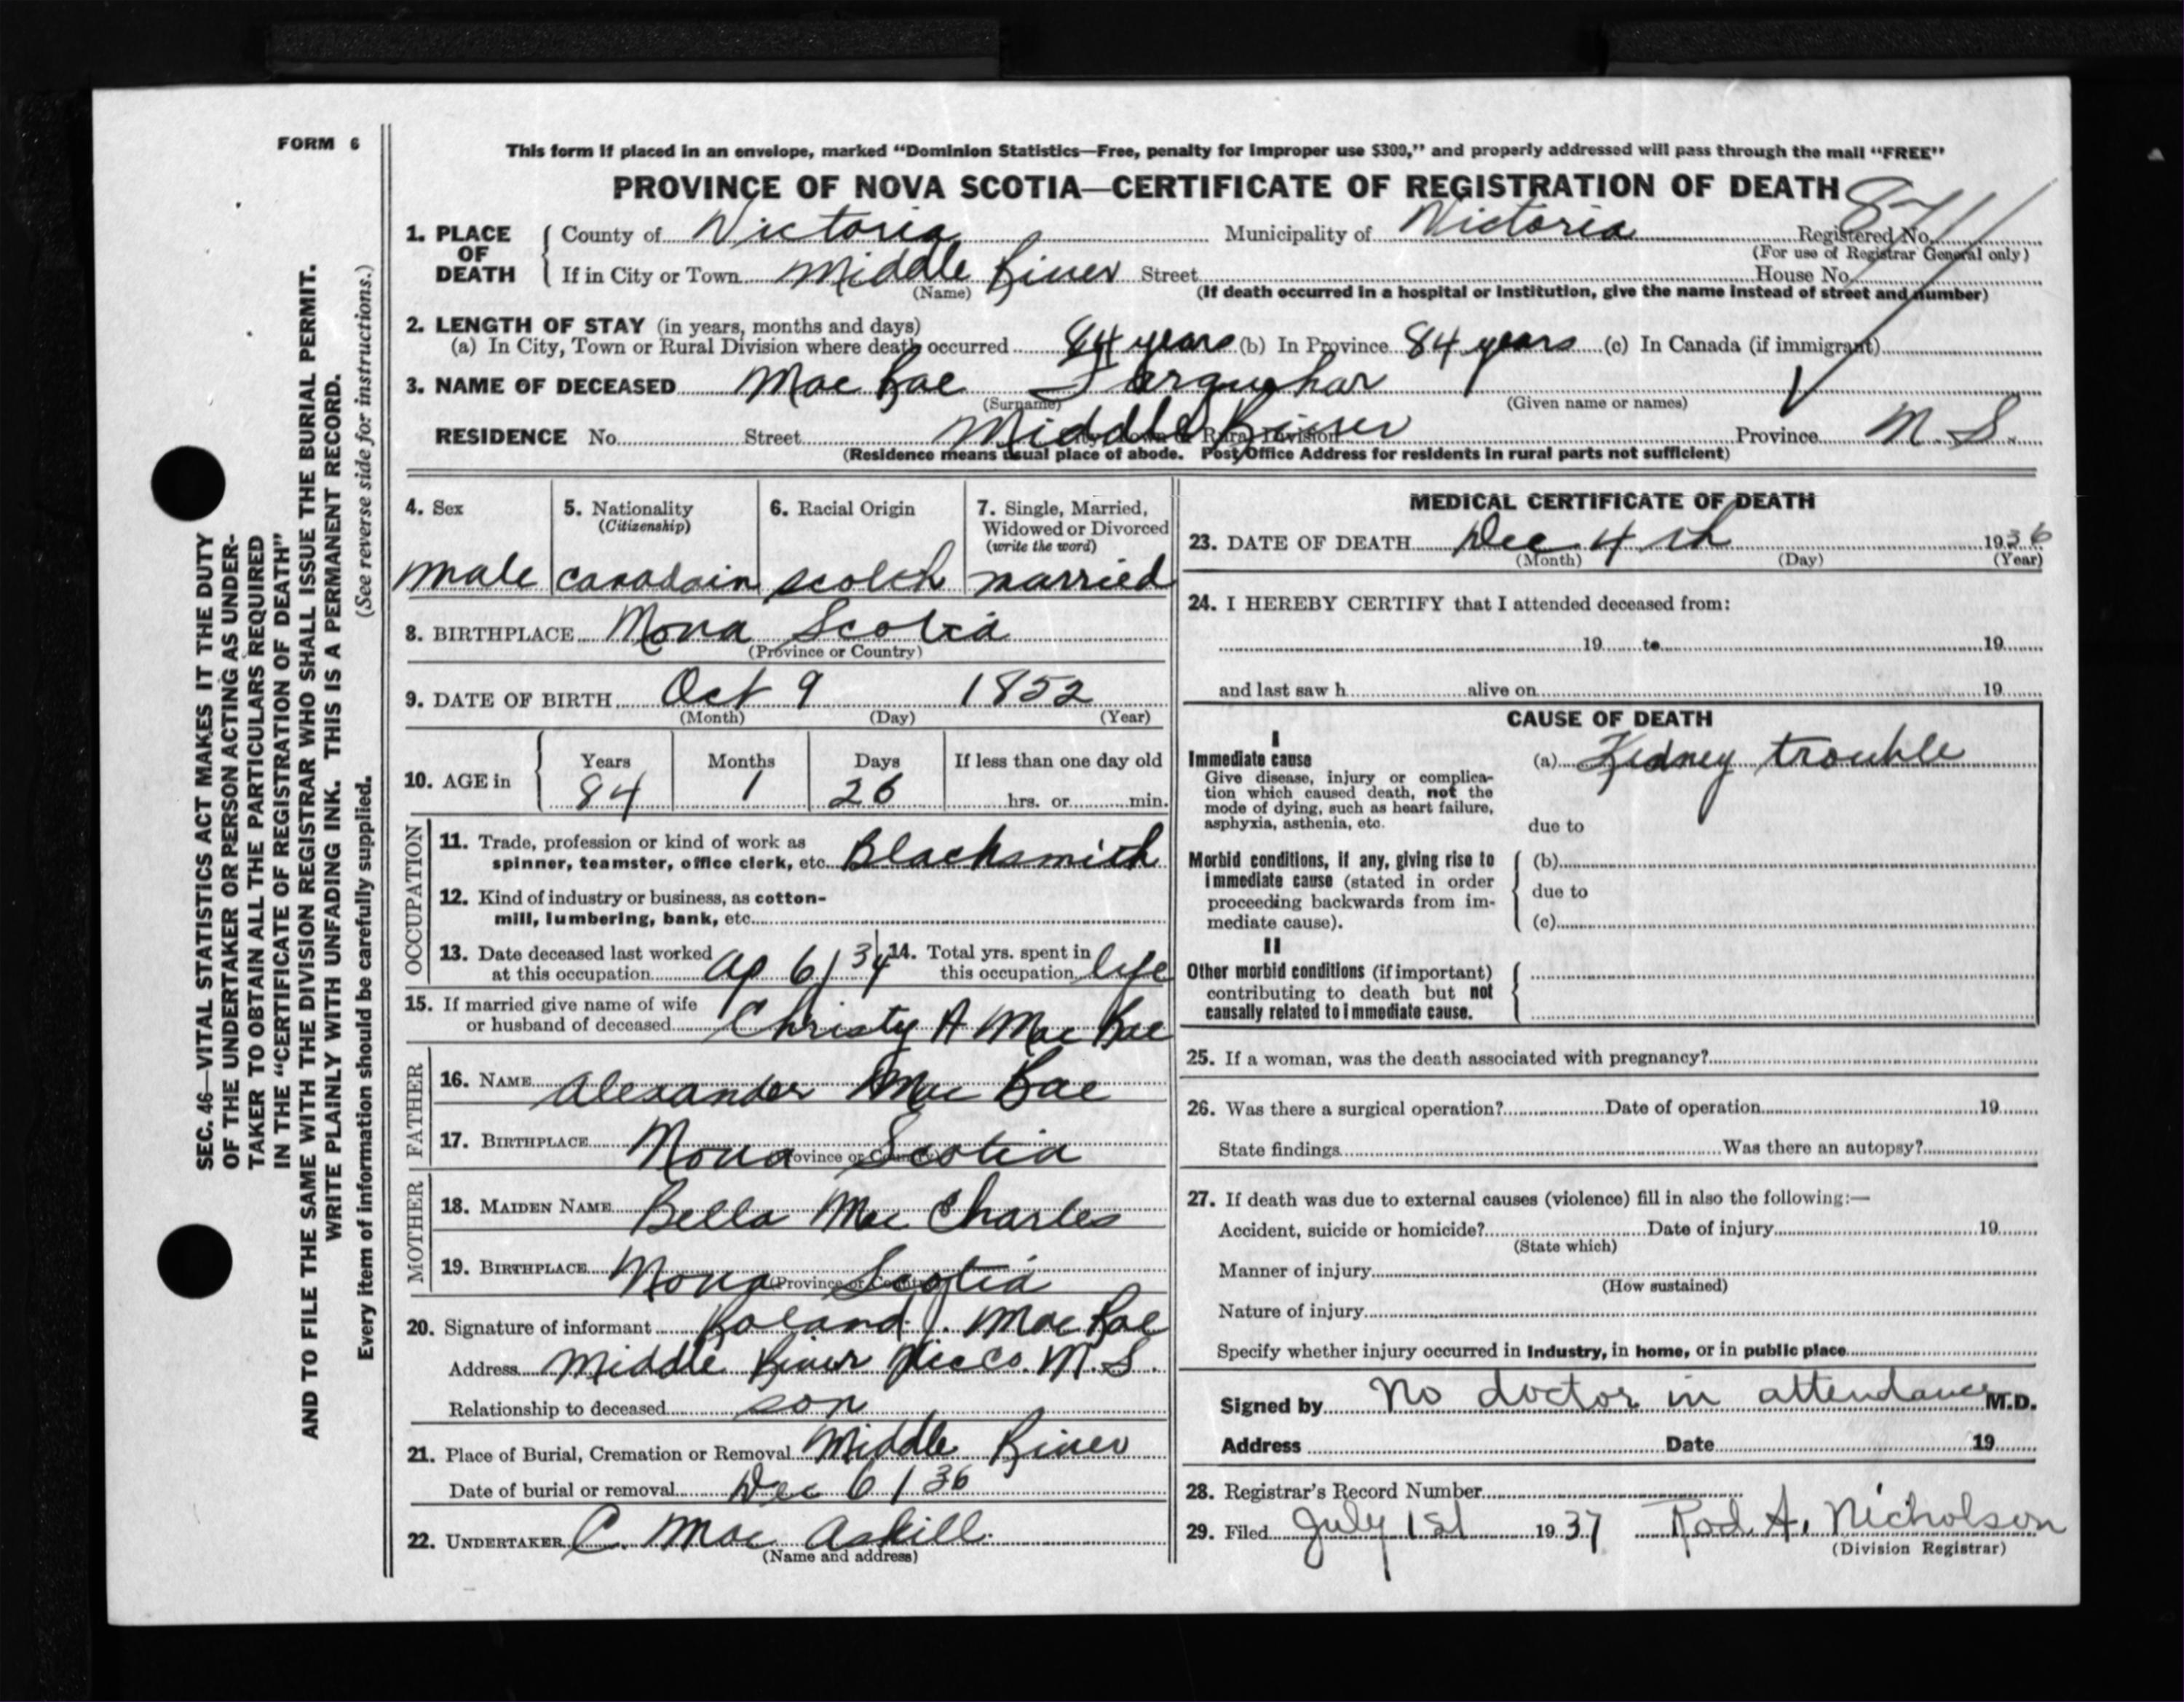 FORM 6
This form if placed in an envelope, marked “Dominion Statistics—Free, penalty for improper use $300,” and properly addressed will pass through the mail “FREE”
PROVINCE OF NOVA SCOTIA—CERTIFICATE OF REGISTRATION OF DEATH
1. PLACE OF DEATH { County of Victoria Municipality of Victoria Registered No.
(For use of Registrar General only)
If in City or Town Middle River Street House No.
(Name) (If death occurred in a hospital or institution, give the name instead of street and number)
2. LENGTH OF STAY (in years, months and days)
(a) In City, Town or Rural Division where death occurred 84 years (b) In Province 84 years (c) In Canada (if immigrant)
3. NAME OF DECEASED Mac Rae Farquhar
(Surname) (Given name or names)
RESIDENCE No. Street Middle River Province N.S.
(Residence means usual place of abode. Post Office Address for residents in rural parts not sufficient)
4. Sex 5. Nationality 6. Racial Origin 7. Single, Married,
(Citizenship) Widowed or Divorced
(write the word)
male canadain scotch married
8. BIRTHPLACE Nova Scotia
(Province or Country)
9. DATE OF BIRTH Oct 9 1852
(Month) (Day) (Year)
Years Months Days If less than one day old
10. AGE in 84 1 26 hrs. or min.
OCCUPATION
11. Trade, profession or kind of work as
spinner, teamster, office clerk, etc. Blacksmith
12. Kind of industry or business, as cotton-
mill, lumbering, bank, etc.
13. Date deceased last worked
at this occupation ap 6/34
14. Total yrs. spent in
this occupation life
15. If married give name of wife
or husband of deceased Christy A Mac Rae
FATHER
16. NAME Alexander Mac Rae
17. BIRTHPLACE Nova Scotia
(Province or Country)
MOTHER
18. MAIDEN NAME Bella Mac Charles
19. BIRTHPLACE Nova Scotia
(Province or Country)
20. Signature of informant Roland J. Mac Rae
Address Middle River Vic Co. N.S.
Relationship to deceased son
21. Place of Burial, Cremation or Removal Middle River
Date of burial or removal Dec 6/36
22. UNDERTAKER C. Mac Askill
(Name and address)
MEDICAL CERTIFICATE OF DEATH
23. DATE OF DEATH Dec 4th 1936
(Month) (Day) (Year)
24. I HEREBY CERTIFY that I attended deceased from:
19 to 19
and last saw h alive on 19
CAUSE OF DEATH
I
Immediate cause (a) Kidney trouble
Give disease, injury or complica-
tion which caused death, not the
mode of dying, such as heart failure,
asphyxia, asthenia, etc. due to
Morbid conditions, if any, giving rise to (b)
immediate cause (stated in order
proceeding backwards from im- due to
mediate cause). (c)
II
Other morbid conditions (if important)
contributing to death but not
causally related to immediate cause.
25. If a woman, was the death associated with pregnancy?
26. Was there a surgical operation? Date of operation 19
State findings Was there an autopsy?
27. If death was due to external causes (violence) fill in also the following:—
Accident, suicide or homicide? Date of injury 19
(State which)
Manner of injury
(How sustained)
Nature of injury
Specify whether injury occurred in industry, in home, or in public place
Signed by No doctor in attendance M.D.
Address Date 19
28. Registrar's Record Number
29. Filed July 1st 1937 Rod. A. Nicholson
(Division Registrar)
SEC. 46—VITAL STATISTICS ACT MAKES IT THE DUTY
OF THE UNDERTAKER OR PERSON ACTING AS UNDER-
TAKER TO OBTAIN ALL THE PARTICULARS REQUIRED
IN THE “CERTIFICATE OF REGISTRATION OF DEATH”
AND TO FILE THE SAME WITH THE DIVISION REGISTRAR WHO SHALL ISSUE THE BURIAL PERMIT.
WRITE PLAINLY WITH UNFADING INK. THIS IS A PERMANENT RECORD.
Every item of information should be carefully supplied. (See reverse side for instructions.)